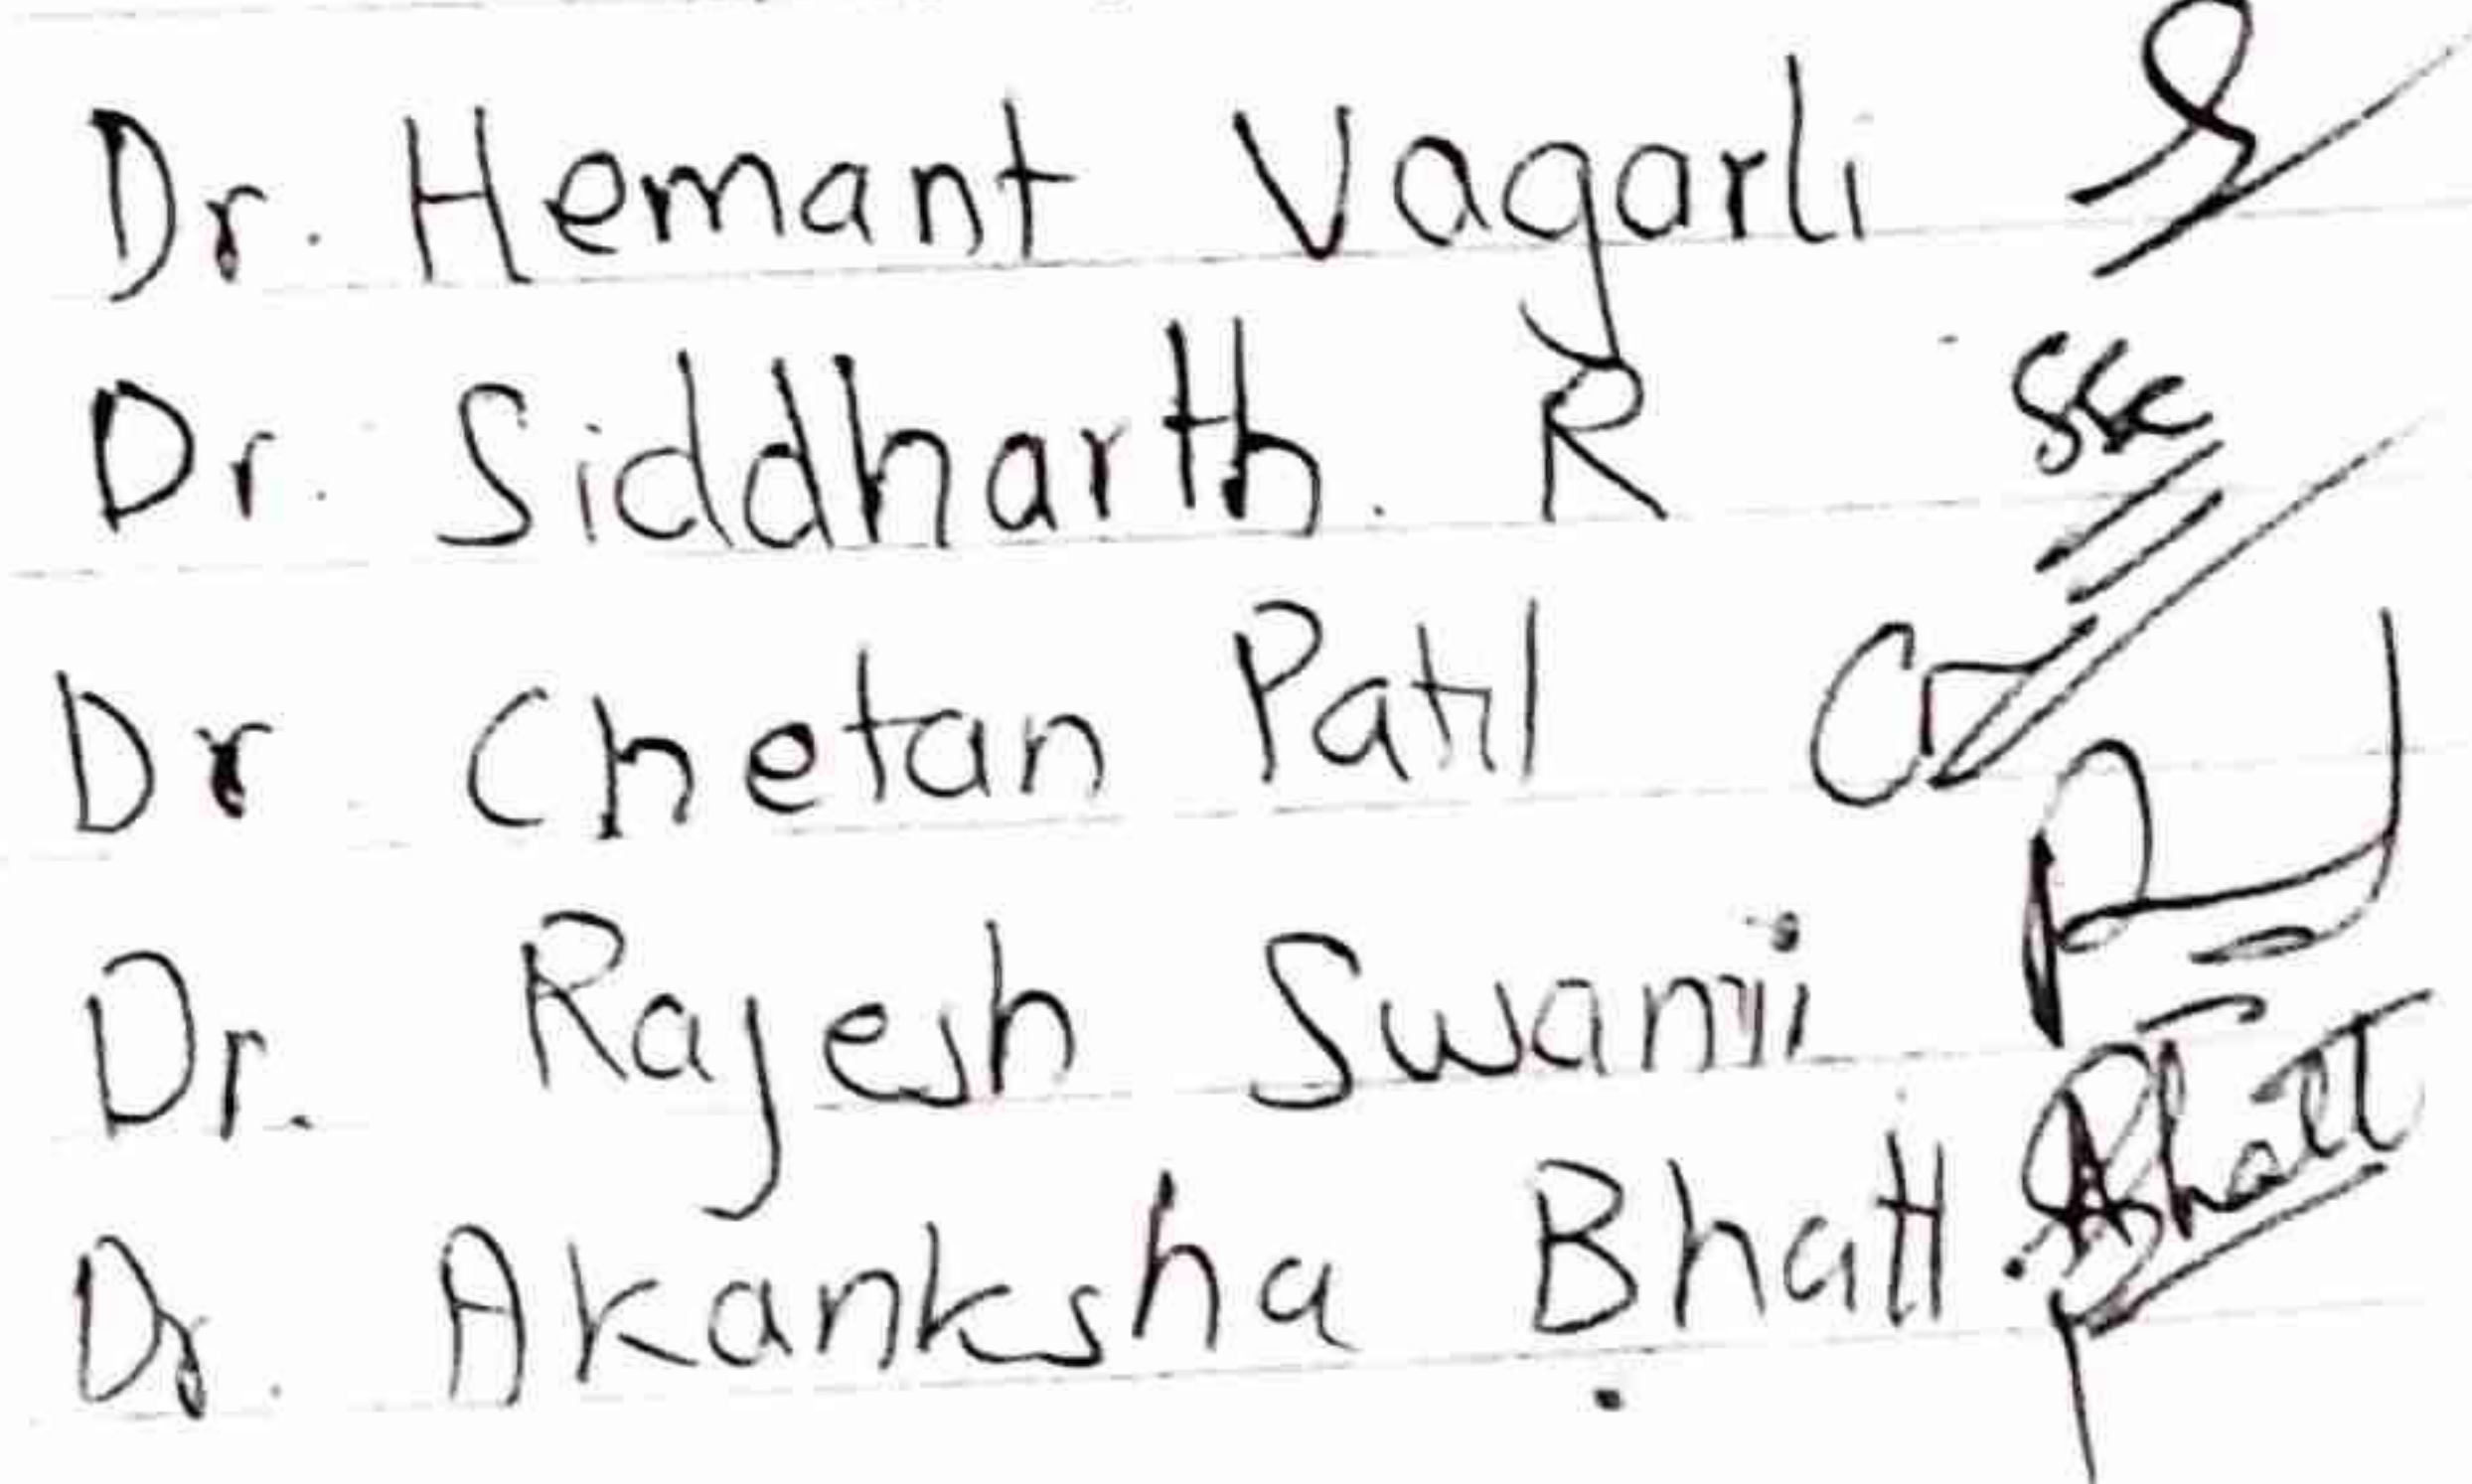 Dr. Hemant Vagarli
Dr. Siddharth. R
Dr Chetan Patil
Dr. Rajesh Swami
Dr. Akanksha Bhatt. Bhatt